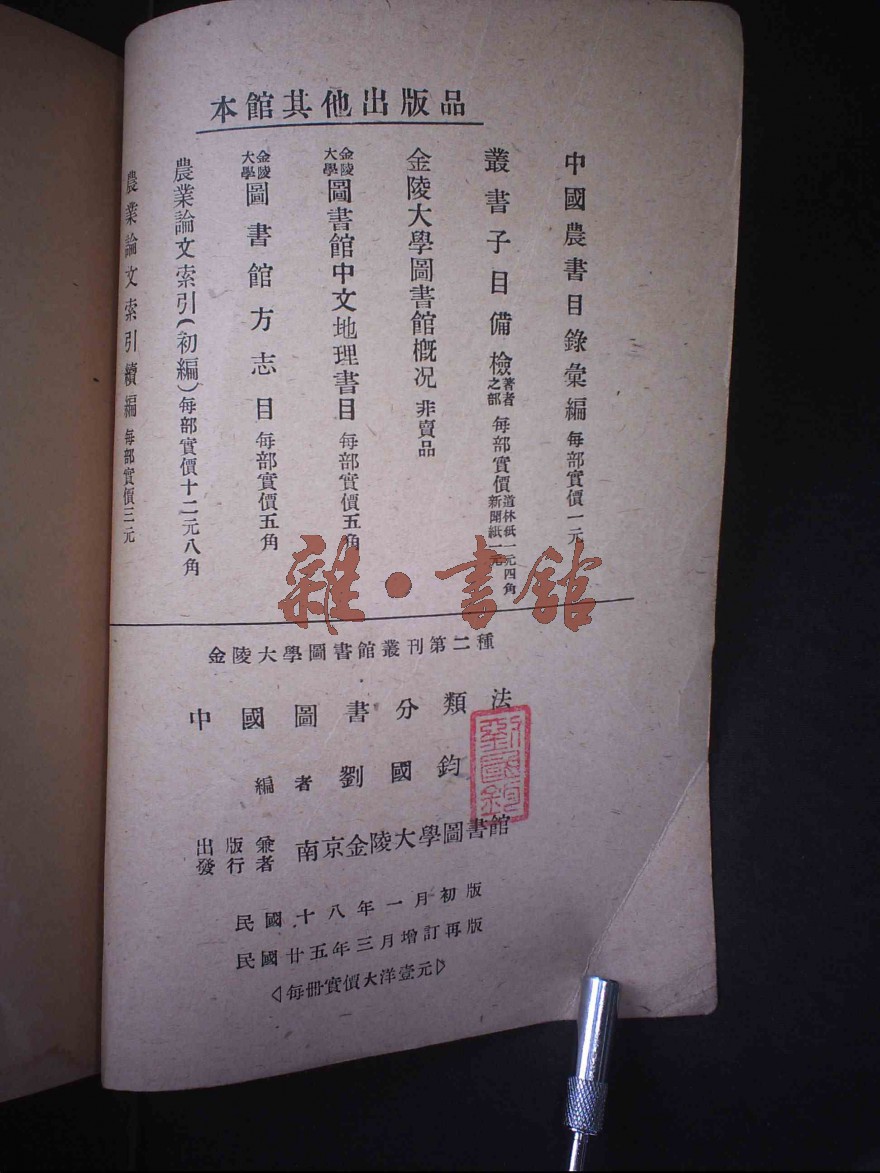 本館其他出版品
中國農書目錄彙編 每部實價一元
叢書子目備檢 著者之部 每部實價 道林紙一元四角 新聞紙一元
金陵大學圖書館概況 非賣品
金陵大學圖書館中文地理書目 每部實價五角
金陵大學圖書館方志目 每部實價五角
農業論文索引(初編) 每部實價十二元八角
農業論文索引續編 每部實價三元
雜·書館
金陵大學圖書館叢刊第二種
中國圖書分類法
編者 劉國鈞
劉國鈞
出版兼發行者 南京金陵大學圖書館
民國十八年一月初版
民國廿五年三月增訂再版
◁每冊實價大洋壹元▷